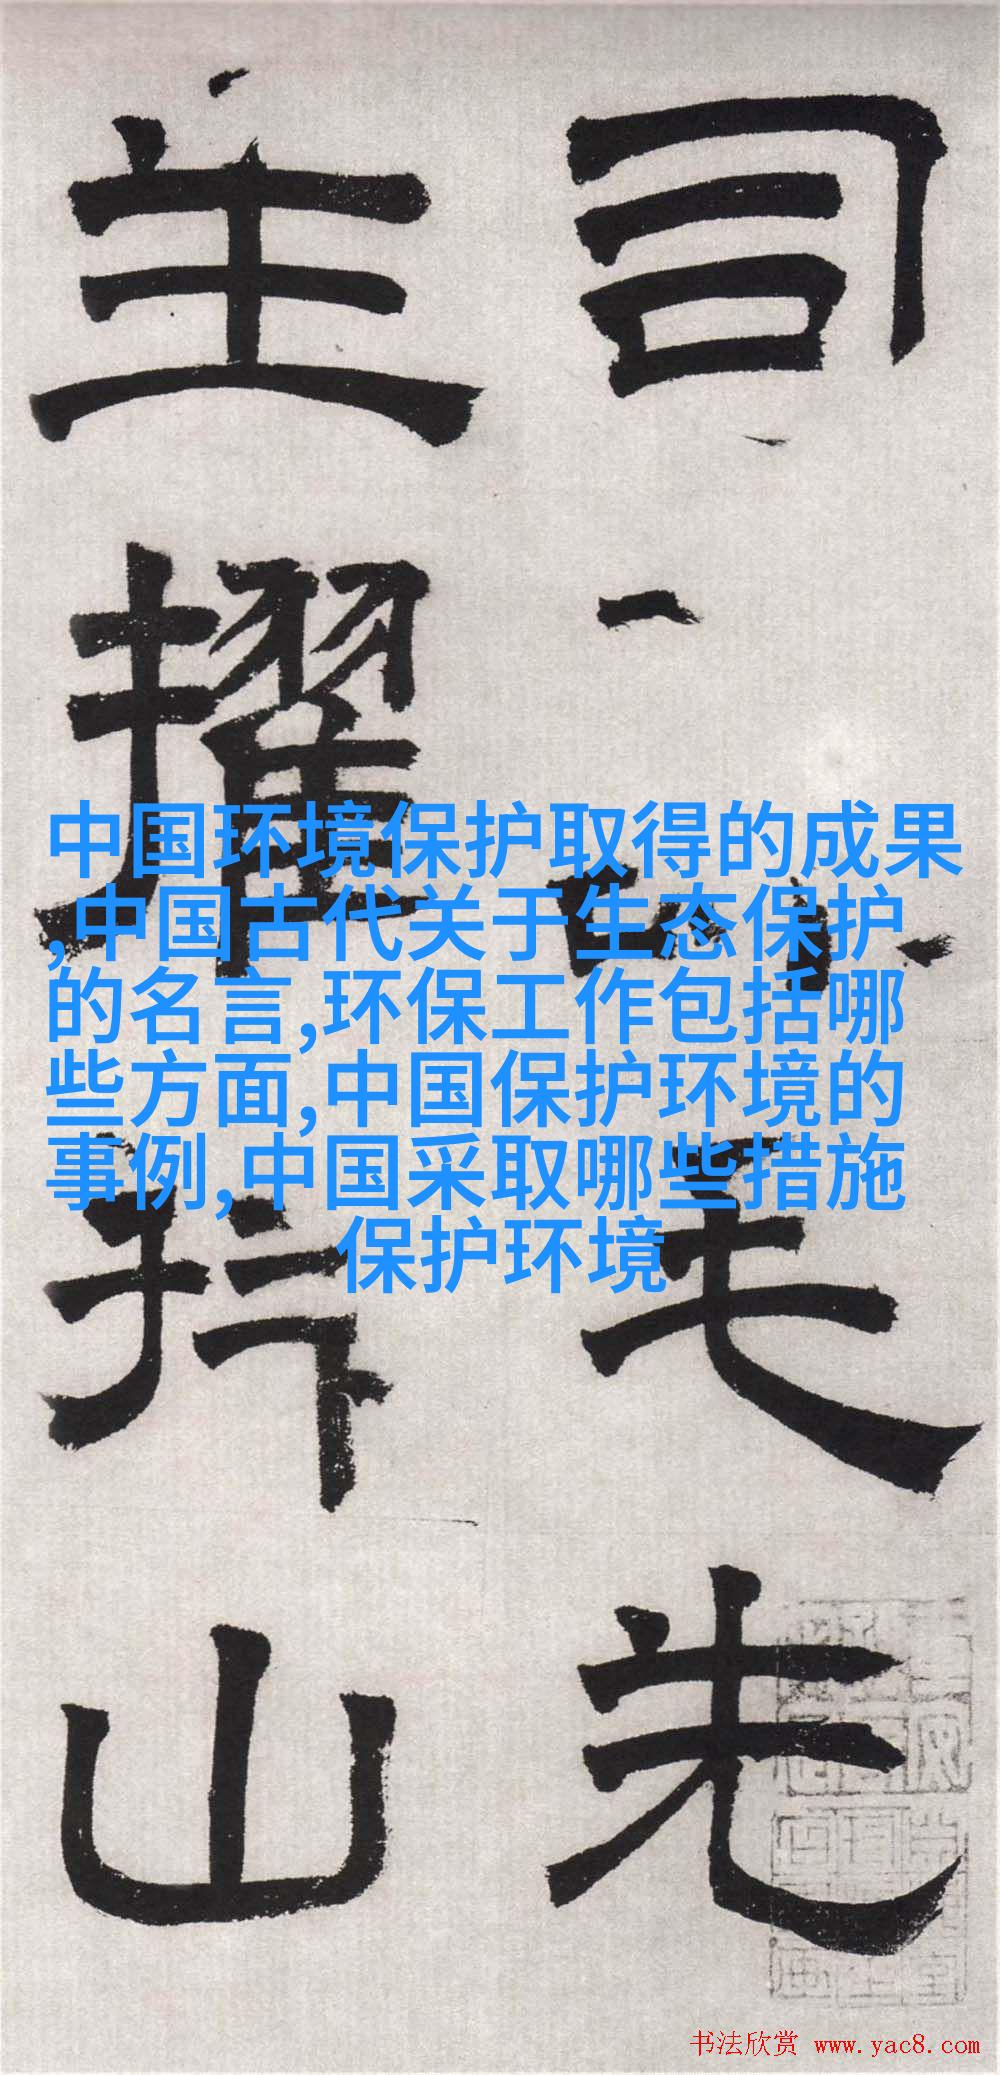 司
先
主
擢
山
中国环境保护取得的成果
,中国古代关于生态保护
的名言,环保工作包括哪
些方面,中国保护环境的
事例,中国采取哪些措施
保护环境
书法欣赏 www.yac8.com